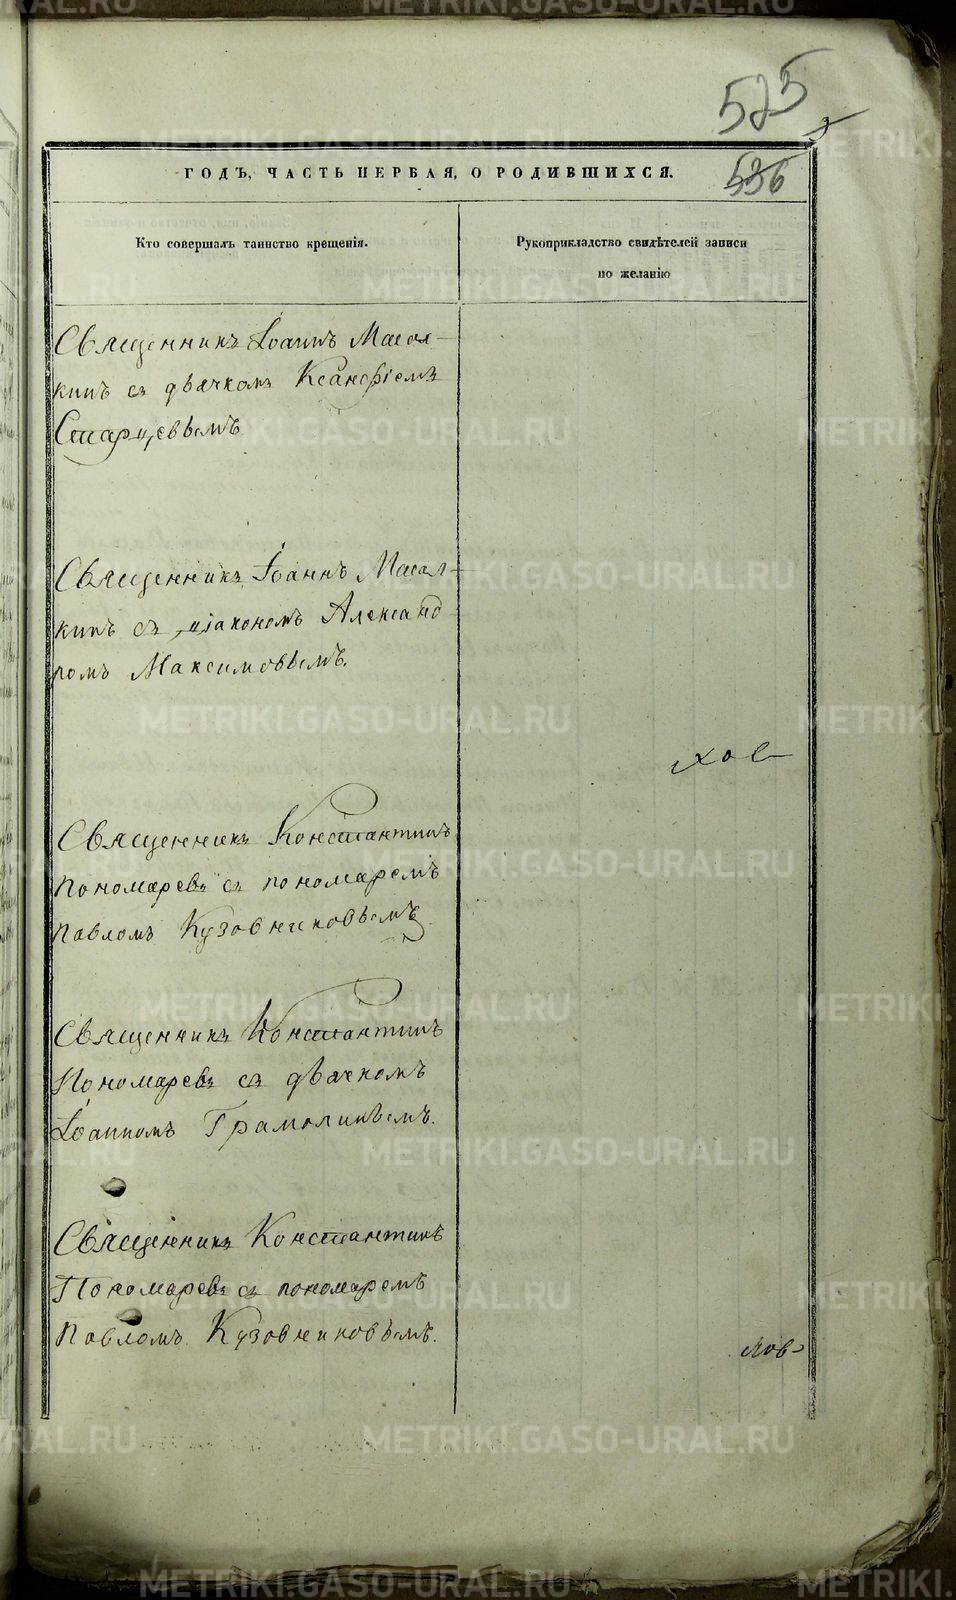 525
536
ГОДЪ, ЧАСТЬ ПЕРВАЯ, О РОДИВШИХСЯ.
Кто совершалъ таинство крещенія.
Рукоприкладство свидѣтелей записи
по желанію
Священникъ Іоаннъ Масал-
кинъ съ дьячкомъ Ксанфіемъ
Старцевымъ
Священникъ Іоаннъ Масал-
кинъ съ діакономъ Александ
ромъ Максимовымъ.
Священникъ Константинъ
Пономаревъ съ пономаремъ
Павломъ Кузовниковымъ
Священникъ Константинъ
Пономаревъ съ дьячкомъ
Іоанномъ Грамолинымъ.
Священникъ Константинъ
Пономаревъ съ пономаремъ
Павломъ Кузовниковымъ.
METRIKI.GASO-URAL.RU